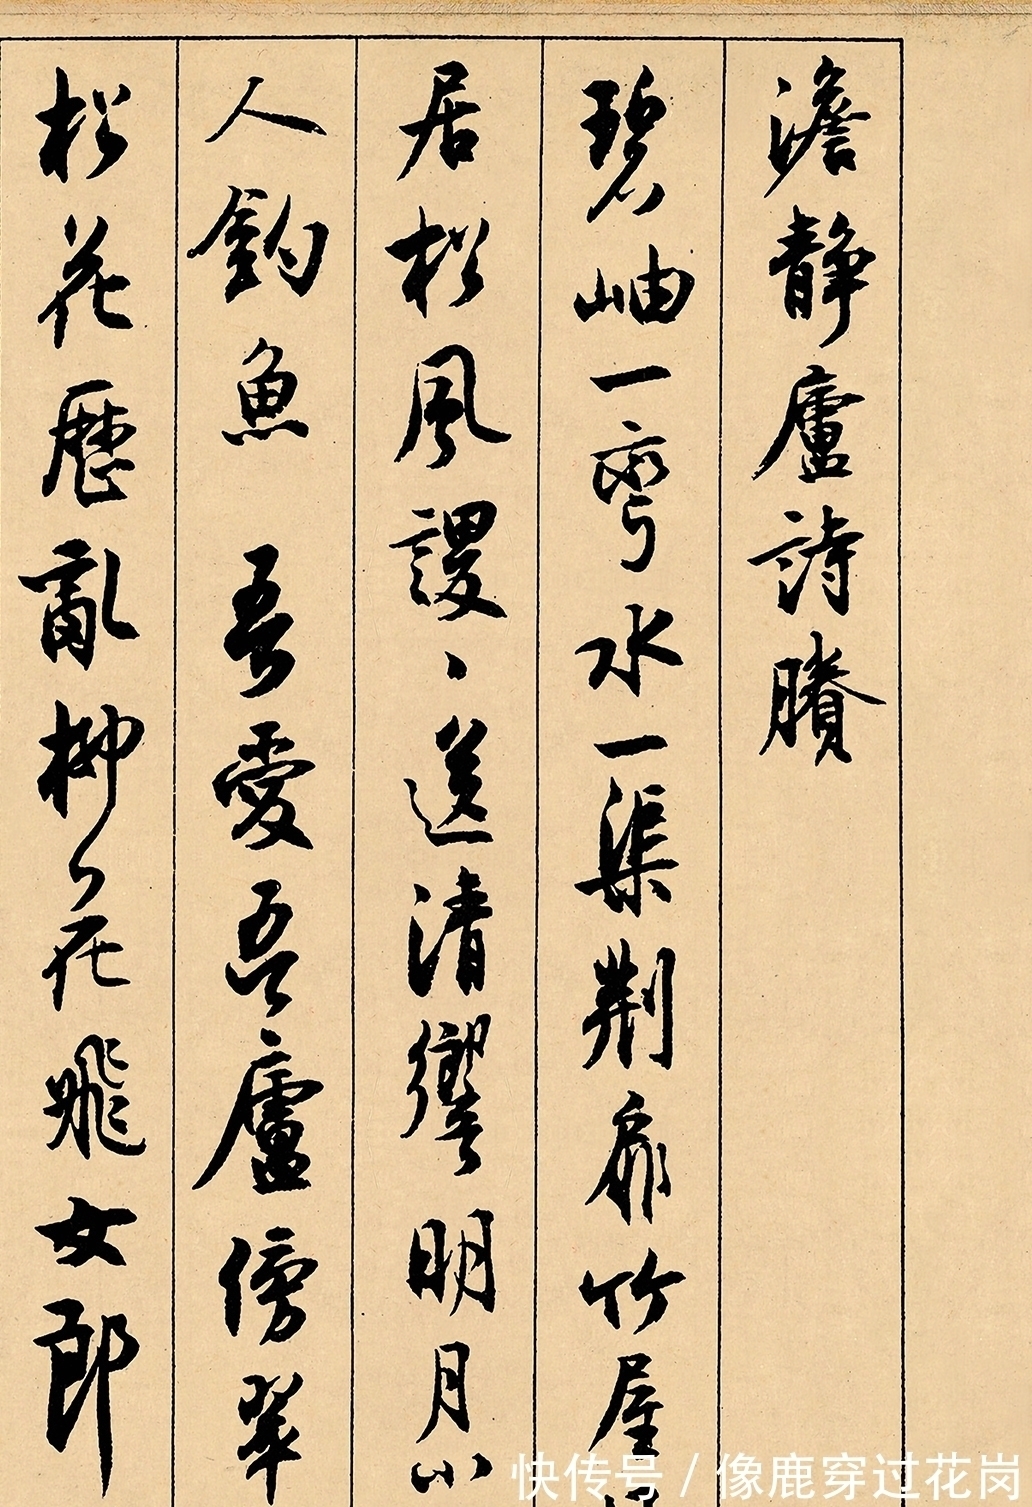 澹静廬詩賸
碧岫一彎水一渠荆扉竹屋
居松風謖〻送清響明月小
人釣魚 吾愛吾廬傍翠
松花歷亂柳花飛女郎
快传号 / 像鹿穿过花岗